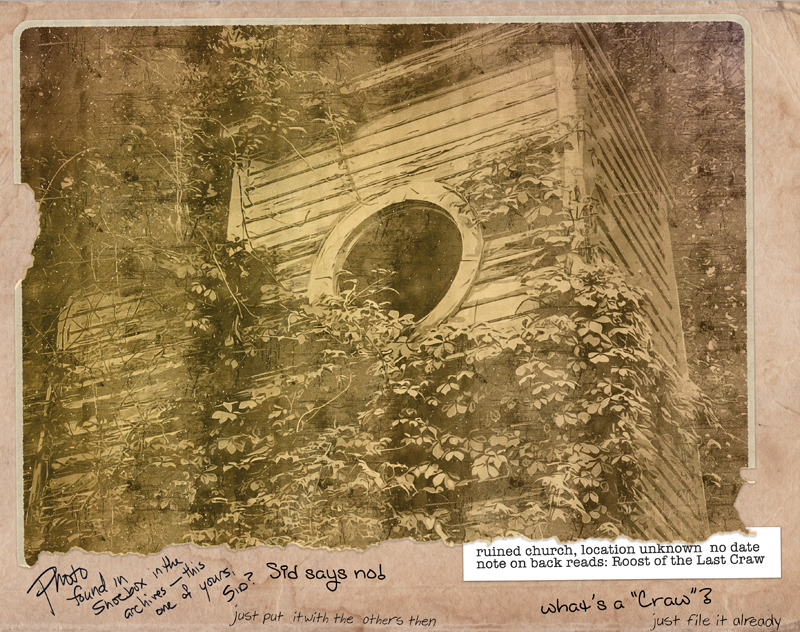 ruined church, location unknown no date
note on back reads: Roost of the Last Craw
Photo
found in
Shoebox in the
archives—this
one of yours,
Sid?
Sid says no!
just put it with the others then
what's a "Craw"?
just file it already